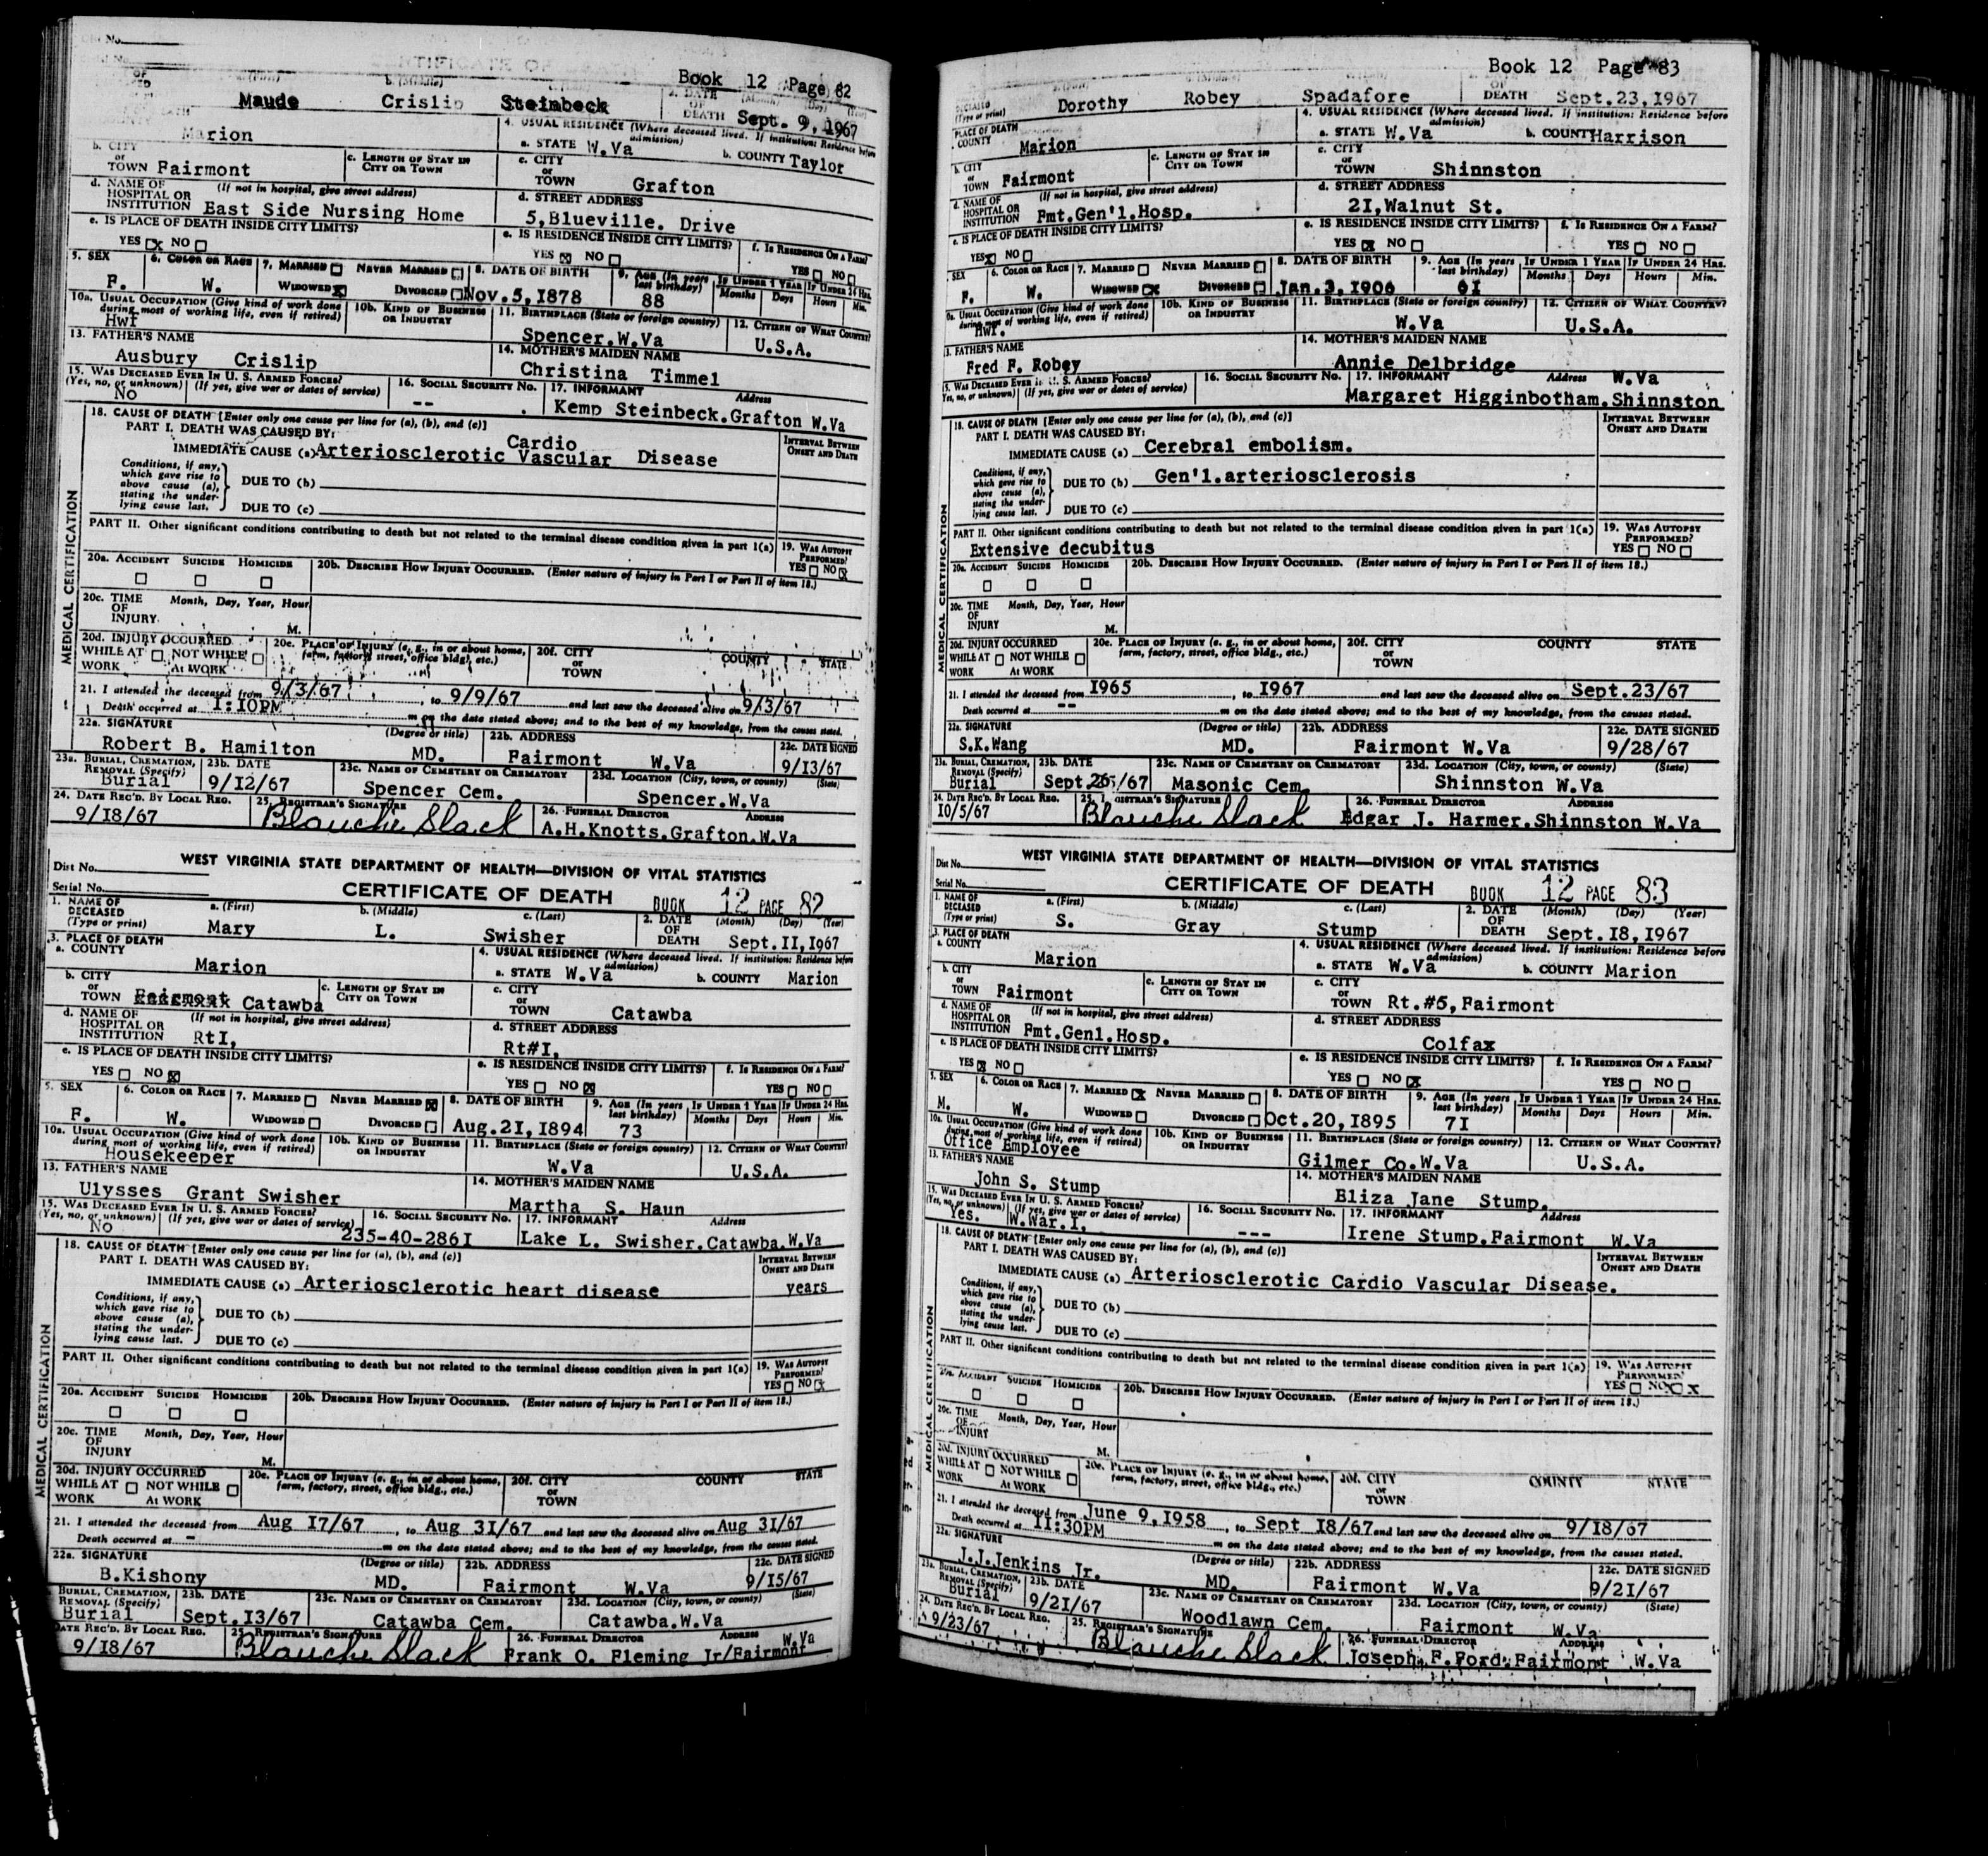 Book 12 Page 82
Maude Crislip Steinbeck DATE OF DEATH Sept. 9, 1967
Marion
4. USUAL RESIDENCE (Where deceased lived. If institution: Residence before admission)
a. STATE W.Va b. COUNTY Taylor
b. CITY or TOWN Fairmont c. LENGTH OF STAY IN CITY OR TOWN c. CITY or TOWN Grafton
d. NAME OF HOSPITAL OR INSTITUTION (If not in hospital, give street address) East Side Nursing Home d. STREET ADDRESS 5, Blueville. Drive
e. IS PLACE OF DEATH INSIDE CITY LIMITS? YES x NO e. IS RESIDENCE INSIDE CITY LIMITS? YES x NO f. IS RESIDENCE ON A FARM? YES NO
5. SEX F. 6. COLOR OR RACE W. 7. MARRIED NEVER MARRIED WIDOWED x DIVORCED 8. DATE OF BIRTH Nov. 5, 1878 9. AGE (In years last birthday) 88 IF UNDER 1 YEAR Months Days IF UNDER 24 HRS. Hours Min.
10a. USUAL OCCUPATION (Give kind of work done during most of working life, even if retired) Hwf 10b. KIND OF BUSINESS OR INDUSTRY 11. BIRTHPLACE (State or foreign country) Spencer.W.Va 12. CITIZEN OF WHAT COUNTRY? U.S.A.
13. FATHER'S NAME Ausbury Crislip 14. MOTHER'S MAIDEN NAME Christina Timmel
15. WAS DECEASED EVER IN U. S. ARMED FORCES? (Yes, no, or unknown) (If yes, give war or dates of service) No 16. SOCIAL SECURITY NO. -- 17. INFORMANT Address Kemp Steinbeck.Grafton W.Va
18. CAUSE OF DEATH [Enter only one cause per line for (a), (b), and (c)]
PART I. DEATH WAS CAUSED BY: INTERVAL BETWEEN ONSET AND DEATH
IMMEDIATE CAUSE (a) Arteriosclerotic Cardio Vascular Disease
Conditions, if any, which gave rise to above cause (a), stating the underlying cause last. DUE TO (b)
DUE TO (c)
PART II. Other significant conditions contributing to death but not related to the terminal disease condition given in part 1(a) 19. WAS AUTOPSY PERFORMED? YES NO x
20a. ACCIDENT SUICIDE HOMICIDE 20b. DESCRIBE HOW INJURY OCCURRED. (Enter nature of injury in Part I or Part II of item 18.)
20c. TIME OF INJURY Month, Day, Year, Hour M.
20d. INJURY OCCURRED WHILE AT WORK NOT WHILE AT WORK 20e. PLACE OF INJURY (e. g., in or about home, farm, factory, street, office bldg., etc.) 20f. CITY or TOWN COUNTY STATE
MEDICAL CERTIFICATION
21. I attended the deceased from 9/3/67 , to 9/9/67 and last saw the deceased alive on 9/3/67
Death occurred at 1:10PM m on the date stated above; and to the best of my knowledge, from the causes stated.
22a. SIGNATURE Robert B. Hamilton (Degree or title) MD. 22b. ADDRESS Fairmont W.Va 22c. DATE SIGNED 9/13/67
23a. BURIAL, CREMATION, REMOVAL (Specify) Burial 23b. DATE 9/12/67 23c. NAME OF CEMETERY OR CREMATORY Spencer Cem. 23d. LOCATION (City, town, or county) (State) Spencer.W.Va
24. DATE REC'D. BY LOCAL REG. 9/18/67 25. REGISTRAR'S SIGNATURE Blanche Slack 26. FUNERAL DIRECTOR ADDRESS A.H.Knotts.Grafton.W.Va
WEST VIRGINIA STATE DEPARTMENT OF HEALTH—DIVISION OF VITAL STATISTICS
Dist No.
Serial No. CERTIFICATE OF DEATH BOOK 12 PAGE 82
1. NAME OF DECEASED (Type or print) a. (First) Mary b. (Middle) L. c. (Last) Swisher 2. DATE OF DEATH (Month) (Day) (Year) Sept.11,1967
3. PLACE OF DEATH a. COUNTY Marion 4. USUAL RESIDENCE (Where deceased lived. If institution: Residence before admission) a. STATE W.Va b. COUNTY Marion
b. CITY or TOWN Catawba c. LENGTH OF STAY IN CITY OR TOWN c. CITY or TOWN Catawba
d. NAME OF HOSPITAL OR INSTITUTION (If not in hospital, give street address) Rt1, d. STREET ADDRESS Rt#1,
e. IS PLACE OF DEATH INSIDE CITY LIMITS? YES NO x e. IS RESIDENCE INSIDE CITY LIMITS? YES NO x f. IS RESIDENCE ON A FARM? YES NO
5. SEX F. 6. COLOR OR RACE W. 7. MARRIED NEVER MARRIED x WIDOWED DIVORCED 8. DATE OF BIRTH Aug.21,1894 9. AGE (In years last birthday) 73 IF UNDER 1 YEAR Months Days IF UNDER 24 HRS. Hours Min.
10a. USUAL OCCUPATION (Give kind of work done during most of working life, even if retired) Housekeeper 10b. KIND OF BUSINESS OR INDUSTRY 11. BIRTHPLACE (State or foreign country) W.Va 12. CITIZEN OF WHAT COUNTRY? U.S.A.
13. FATHER'S NAME Ulysses Grant Swisher 14. MOTHER'S MAIDEN NAME Martha S. Haun
15. WAS DECEASED EVER IN U. S. ARMED FORCES? (Yes, no, or unknown) (If yes, give war or dates of service) No 16. SOCIAL SECURITY NO. 235-40-2861 17. INFORMANT Address Lake L. Swisher.Catawba.W.Va
18. CAUSE OF DEATH [Enter only one cause per line for (a), (b), and (c)]
PART I. DEATH WAS CAUSED BY: INTERVAL BETWEEN ONSET AND DEATH
IMMEDIATE CAUSE (a) Arteriosclerotic heart disease years
Conditions, if any, which gave rise to above cause (a), stating the underlying cause last. DUE TO (b)
DUE TO (c)
PART II. Other significant conditions contributing to death but not related to the terminal disease condition given in part 1(a) 19. WAS AUTOPSY PERFORMED? YES NO x
20a. ACCIDENT SUICIDE HOMICIDE 20b. DESCRIBE HOW INJURY OCCURRED. (Enter nature of injury in Part I or Part II of item 18.)
20c. TIME OF INJURY Month, Day, Year, Hour M.
20d. INJURY OCCURRED WHILE AT WORK NOT WHILE AT WORK 20e. PLACE OF INJURY (e. g., in or about home, farm, factory, street, office bldg., etc.) 20f. CITY or TOWN COUNTY STATE
MEDICAL CERTIFICATION
21. I attended the deceased from Aug 17/67 , to Aug 31/67 and last saw the deceased alive on Aug 31/67
Death occurred at - m on the date stated above; and to the best of my knowledge, from the causes stated.
22a. SIGNATURE B.Kishony (Degree or title) MD. 22b. ADDRESS Fairmont W.Va 22c. DATE SIGNED 9/15/67
BURIAL, CREMATION, REMOVAL (Specify) Burial 23b. DATE Sept.13/67 23c. NAME OF CEMETERY OR CREMATORY Catawba Cem. 23d. LOCATION (City, town, or county) (State) Catawba.W.Va
DATE REC'D. BY LOCAL REG. 9/18/67 25. REGISTRAR'S SIGNATURE Blanche Slack 26. FUNERAL DIRECTOR ADDRESS Frank O. Fleming Jr/Fairmont W.Va
Book 12 Page 83
DECEASED (Type or print) Dorothy Robey Spadafore OF DEATH Sept.23,1967
PLACE OF DEATH COUNTY Marion 4. USUAL RESIDENCE (Where deceased lived. If institution: Residence before admission) a. STATE W.Va b. COUNTY Harrison
b. CITY or TOWN Fairmont c. LENGTH OF STAY IN CITY OR TOWN c. CITY or TOWN Shinnston
d. NAME OF HOSPITAL OR INSTITUTION (If not in hospital, give street address) Fmt.Gen'l.Hosp. d. STREET ADDRESS 21,Walnut St.
e. IS PLACE OF DEATH INSIDE CITY LIMITS? YES x NO e. IS RESIDENCE INSIDE CITY LIMITS? YES x NO f. IS RESIDENCE ON A FARM? YES NO
SEX F. 6. COLOR OR RACE W. 7. MARRIED NEVER MARRIED WIDOWED x DIVORCED 8. DATE OF BIRTH Jan.3,1906 9. AGE (In years last birthday) 61 IF UNDER 1 YEAR Months Days IF UNDER 24 HRS. Hours Min.
USUAL OCCUPATION (Give kind of work done during most of working life, even if retired) Hwf. 10b. KIND OF BUSINESS OR INDUSTRY 11. BIRTHPLACE (State or foreign country) W.Va 12. CITIZEN OF WHAT COUNTRY? U.S.A.
FATHER'S NAME Fred F. Robey 14. MOTHER'S MAIDEN NAME Annie Delbridge
WAS DECEASED EVER IN U. S. ARMED FORCES? (Yes, no, or unknown) (If yes, give war or dates of service) 16. SOCIAL SECURITY NO. 17. INFORMANT Address Margaret Higginbotham.Shinnston W.Va
18. CAUSE OF DEATH [Enter only one cause per line for (a), (b), and (c)]
PART I. DEATH WAS CAUSED BY: INTERVAL BETWEEN ONSET AND DEATH
IMMEDIATE CAUSE (a) Cerebral embolism.
Conditions, if any, which gave rise to above cause (a), stating the underlying cause last. DUE TO (b) Gen'l.arteriosclerosis
DUE TO (c)
PART II. Other significant conditions contributing to death but not related to the terminal disease condition given in part 1(a) 19. WAS AUTOPSY PERFORMED? YES NO
Extensive decubitus
20a. ACCIDENT SUICIDE HOMICIDE 20b. DESCRIBE HOW INJURY OCCURRED. (Enter nature of injury in Part I or Part II of item 18.)
20c. TIME OF INJURY Month, Day, Year, Hour M.
20d. INJURY OCCURRED WHILE AT WORK NOT WHILE AT WORK 20e. PLACE OF INJURY (e. g., in or about home, farm, factory, street, office bldg., etc.) 20f. CITY or TOWN COUNTY STATE
MEDICAL CERTIFICATION
21. I attended the deceased from 1965 , to 1967 and last saw the deceased alive on Sept.23/67
Death occurred at -- m on the date stated above; and to the best of my knowledge, from the causes stated.
22a. SIGNATURE S.K.Wang (Degree or title) MD. 22b. ADDRESS Fairmont W.Va 22c. DATE SIGNED 9/28/67
23a. BURIAL, CREMATION, REMOVAL (Specify) Burial 23b. DATE Sept.26/67 23c. NAME OF CEMETERY OR CREMATORY Masonic Cem 23d. LOCATION (City, town, or county) (State) Shinnston W.Va
24. DATE REC'D. BY LOCAL REG. 10/5/67 25. REGISTRAR'S SIGNATURE Blanche Slack 26. FUNERAL DIRECTOR ADDRESS Edgar J. Harmer.Shinnston W.Va
WEST VIRGINIA STATE DEPARTMENT OF HEALTH—DIVISION OF VITAL STATISTICS
Dist No.
Serial No. CERTIFICATE OF DEATH BOOK 12 PAGE 83
1. NAME OF DECEASED (Type or print) a. (First) S. b. (Middle) Gray c. (Last) Stump 2. DATE OF DEATH (Month) (Day) (Year) Sept.18,1967
3. PLACE OF DEATH a. COUNTY Marion 4. USUAL RESIDENCE (Where deceased lived. If institution: Residence before admission) a. STATE W.Va b. COUNTY Marion
b. CITY or TOWN Fairmont c. LENGTH OF STAY IN CITY OR TOWN c. CITY or TOWN Rt.#5,Fairmont
d. NAME OF HOSPITAL OR INSTITUTION (If not in hospital, give street address) Fmt.Genl.Hosp. d. STREET ADDRESS Colfax
e. IS PLACE OF DEATH INSIDE CITY LIMITS? YES x NO e. IS RESIDENCE INSIDE CITY LIMITS? YES NO x f. IS RESIDENCE ON A FARM? YES NO
5. SEX M. 6. COLOR OR RACE W. 7. MARRIED x NEVER MARRIED WIDOWED DIVORCED 8. DATE OF BIRTH Oct.20,1895 9. AGE (In years last birthday) 71 IF UNDER 1 YEAR Months Days IF UNDER 24 HRS. Hours Min.
10a. USUAL OCCUPATION (Give kind of work done during most of working life, even if retired) Office Employee 10b. KIND OF BUSINESS OR INDUSTRY 11. BIRTHPLACE (State or foreign country) Gilmer Co.W.Va 12. CITIZEN OF WHAT COUNTRY? U.S.A.
13. FATHER'S NAME John S. Stump 14. MOTHER'S MAIDEN NAME Eliza Jane Stump.
15. WAS DECEASED EVER IN U. S. ARMED FORCES? (Yes, no, or unknown) (If yes, give war or dates of service) Yes. W.War.I. 16. SOCIAL SECURITY NO. --- 17. INFORMANT Address Irene Stump.Fairmont W.Va
18. CAUSE OF DEATH [Enter only one cause per line for (a), (b), and (c)]
PART I. DEATH WAS CAUSED BY: INTERVAL BETWEEN ONSET AND DEATH
IMMEDIATE CAUSE (a) Arteriosclerotic Cardio Vascular Disease.
Conditions, if any, which gave rise to above cause (a), stating the underlying cause last. DUE TO (b)
DUE TO (c)
PART II. Other significant conditions contributing to death but not related to the terminal disease condition given in part 1(a) 19. WAS AUTOPSY PERFORMED? YES NO x
20a. ACCIDENT SUICIDE HOMICIDE 20b. DESCRIBE HOW INJURY OCCURRED. (Enter nature of injury in Part I or Part II of item 18.)
20c. TIME OF INJURY Month, Day, Year, Hour M.
20d. INJURY OCCURRED WHILE AT WORK NOT WHILE AT WORK 20e. PLACE OF INJURY (e. g., in or about home, farm, factory, street, office bldg., etc.) 20f. CITY or TOWN COUNTY STATE
MEDICAL CERTIFICATION
21. I attended the deceased from June 9,1958 , to Sept 18/67 and last saw the deceased alive on 9/18/67
Death occurred at 11:30PM m on the date stated above; and to the best of my knowledge, from the causes stated.
22a. SIGNATURE J.J.Jenkins Jr. (Degree or title) MD. 22b. ADDRESS Fairmont W.Va 22c. DATE SIGNED 9/21/67
23a. BURIAL, CREMATION, REMOVAL (Specify) Burial 23b. DATE 9/21/67 23c. NAME OF CEMETERY OR CREMATORY Woodlawn Cem. 23d. LOCATION (City, town, or county) (State) Fairmont W.Va
24. DATE REC'D. BY LOCAL REG. 9/23/67 25. REGISTRAR'S SIGNATURE Blanche Slack 26. FUNERAL DIRECTOR ADDRESS Joseph.F.Ford.Fairmont W.Va